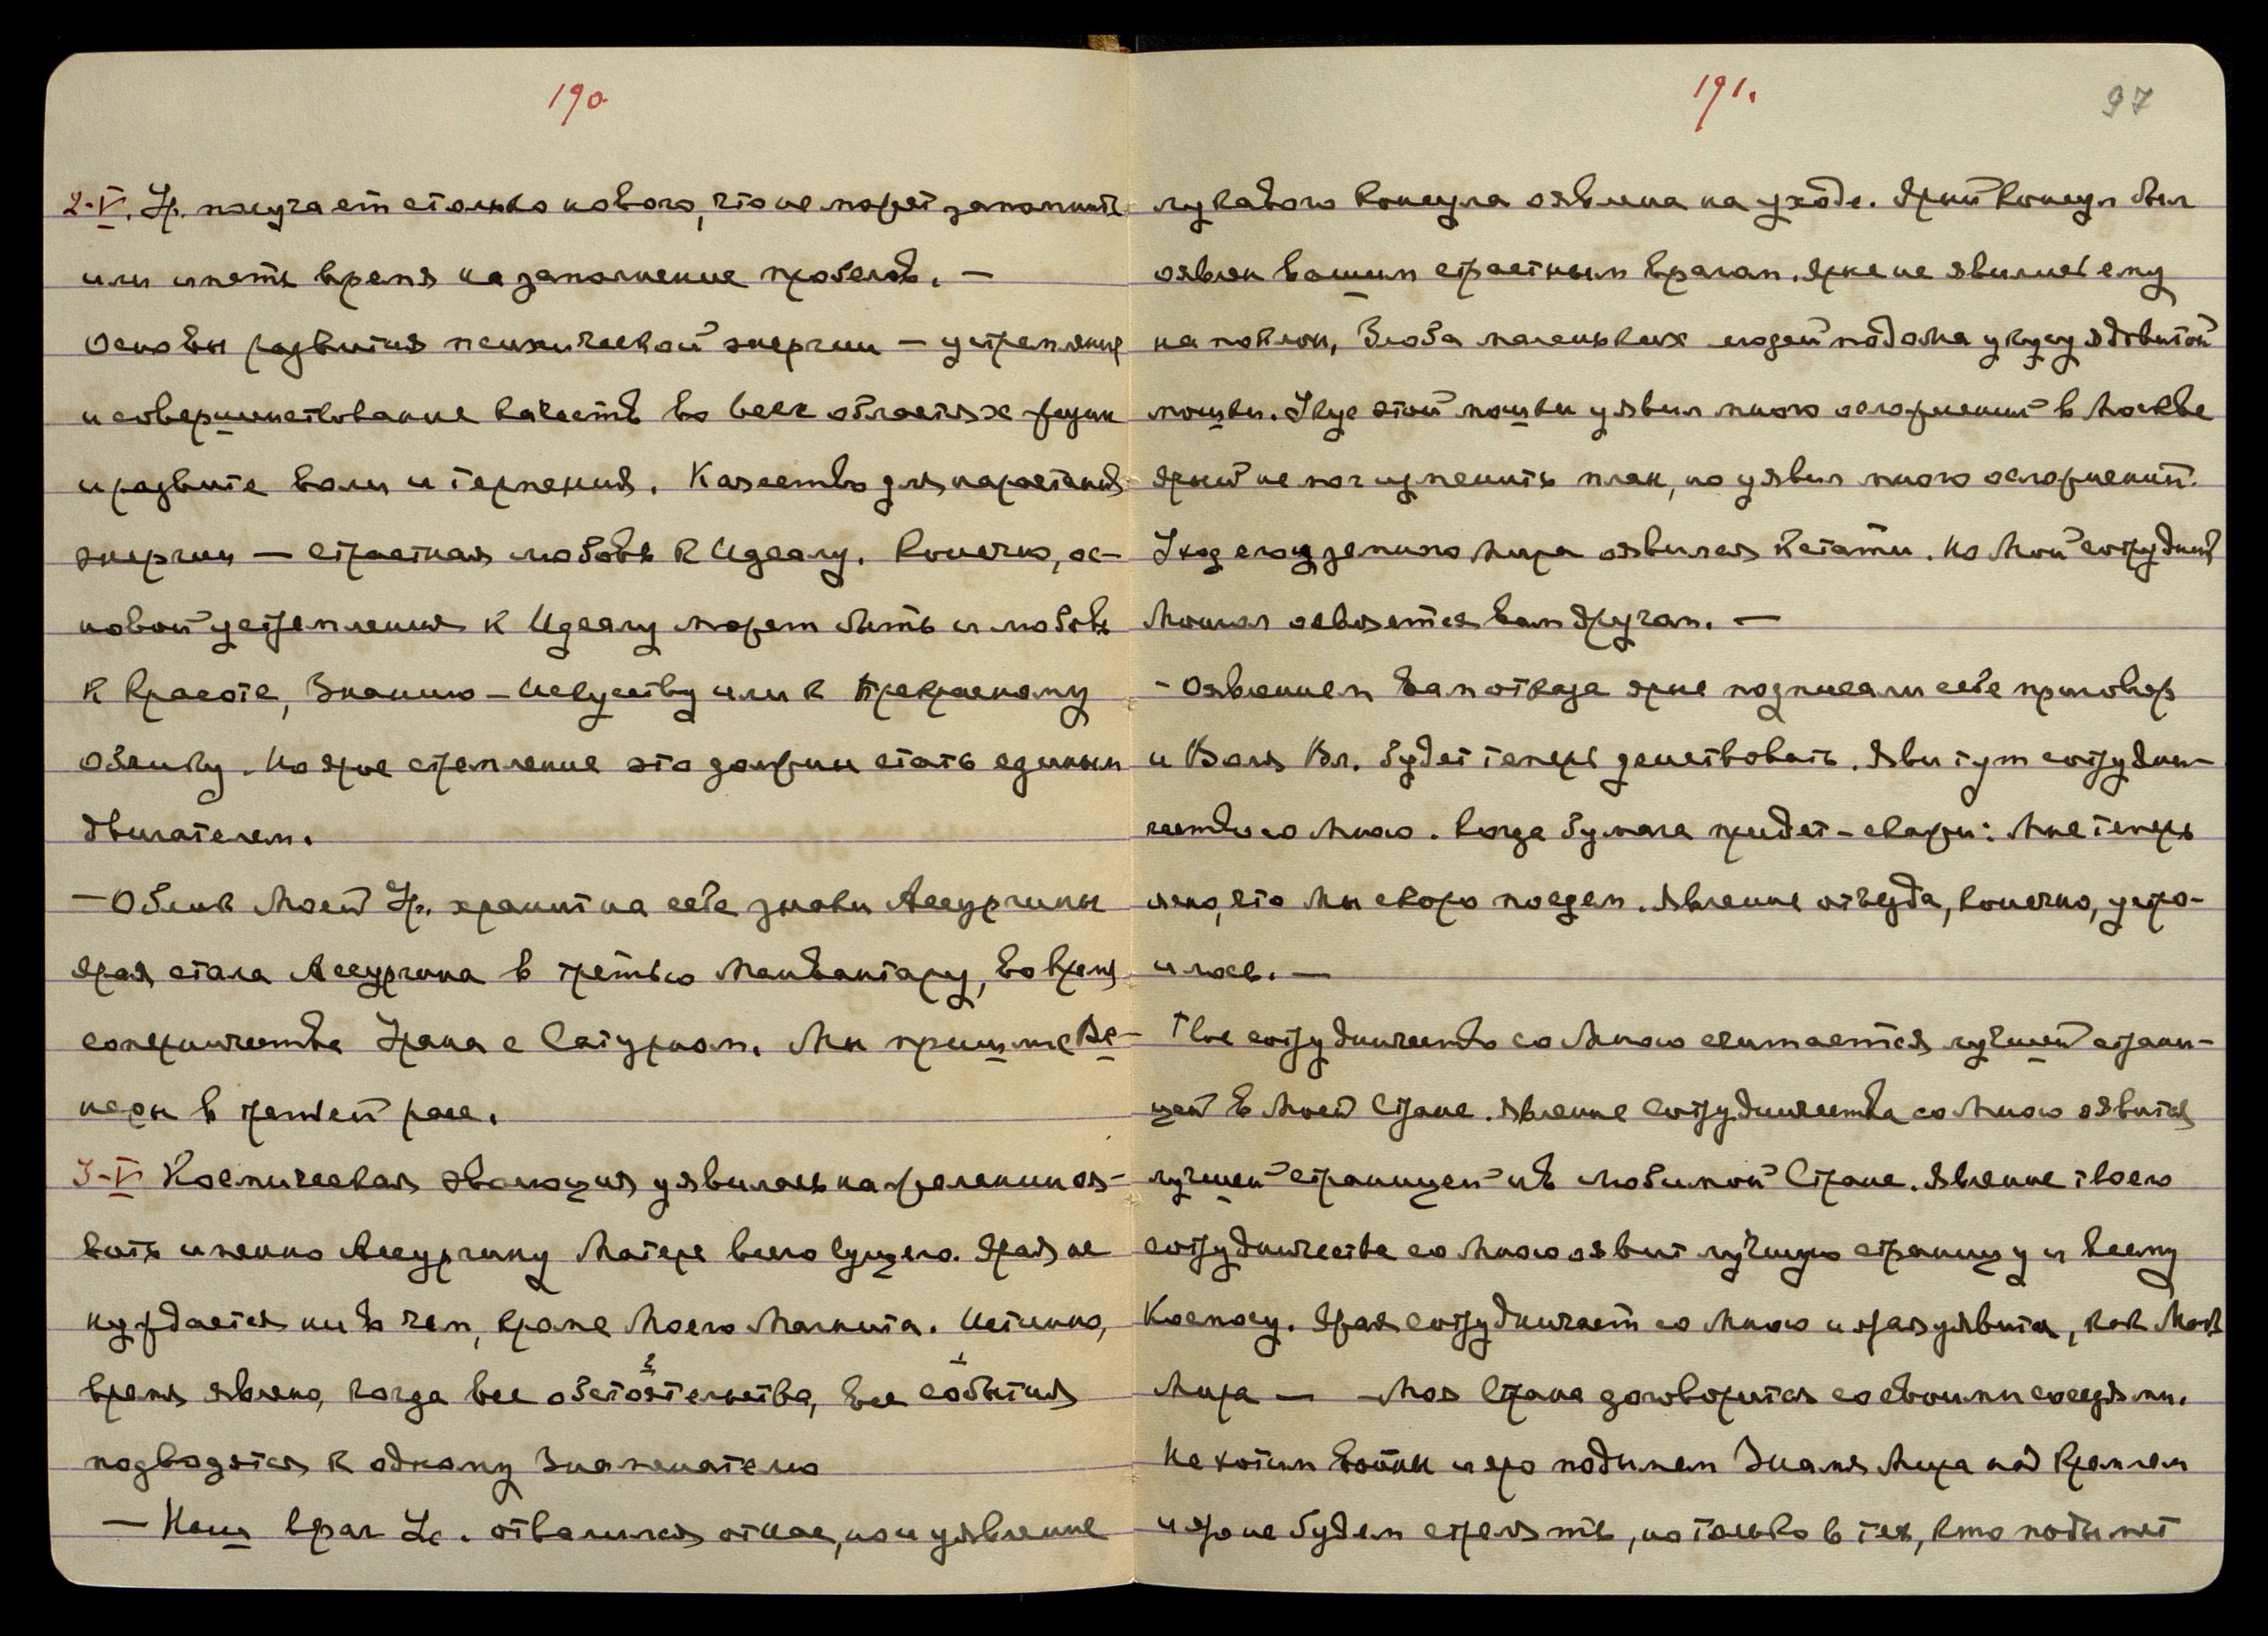 190
2-V. Ур. получает столько нового, что не может запомнить
или иметь время на заполнение пробелов. —
Основы развития психической энергии — устремление
и совершенствование качеств во всех областях жизни
и развитие воли и терпения. Качество для нарастания
энергии — страстная любовь к Идеалу. Конечно, ос-
новой устремления к Идеалу может быть и любовь
к Красоте, Знанию — Искусству или к Прекрасному
Облику. Но ярое стремление это должно стать единым
двигателем.
— Облик Моей Ур. хранит на себе знаки Ассургины
ярая стала Ассургина в третью Манвантару, во время
соперничества Урана с Сатурном. Мы пришли с Ве-
неры в третьей расе.
3-V Космическая эволюция уявилась на желании оя-
вить именно Ассургину Матерь всего Сущего. Ярая не
нуждается ни в чем, кроме Моего Магнита. Истинно,
время явлено, когда все обстоятельства, все события
2 1
подводятся к одному Знаменателю
— Наш враг отвалился от нас, но и уявление
191.
97
лукавого Консула оявлена на уходе. Ярый Консул был
оявлен вашим страстным врагом. Яркие не явились ему
на поклон, Злоба маленьких людей подобна укусу ядовитой
мошки. Укус этой мошки уявил много осложнений в Москве
ярый не мог изменить план, но уявил много осложнений.
Уход его из земного Мира оявился кстати. Но Мой сотрудник
Монгол оявляется вам другом. —
- Оявлением вам отказа ярые подписали себе приговор
и Воля Вл. будет теперь действовать. Яви тут сотрудни-
чество со Мною. Когда бумага придет — скажи: Мне теперь
ясно, что мы скоро поедем. Явление отъезда, конечно, устро-
илось. —
Твое сотрудничество со Мною считается лучшей страни-
цей в Моей Стране. Явление Сотрудничества со Мною оявится
лучшей страницей и в любимой Стране. Явление твоего
сотрудничества со Мною оявит лучшую страницу и всему
Космосу. Ярая сотрудничает со Мною и ярая уявится, как Мать
Мира — Моя Страна договорится со своими соседями.
Не хотим войны и яро подымем Знамя Мира над Кремлем
и яро не будем стрелять, но только в тех, кто подымет